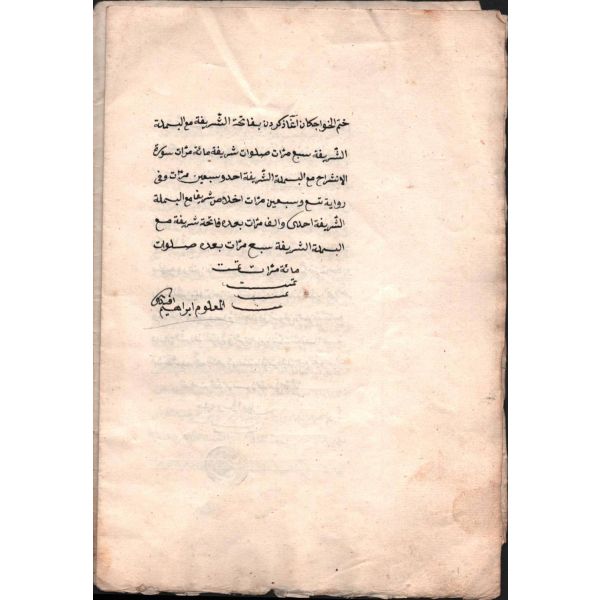 ختم الخواجكان آغاز كردن بفاتحة الشريفة مع البسملة
الشريفة سبع مرّات صلوات شريفة مائة مرّات سورة
الإنشراح مع البسملة الشريفة احد وسبعين مرّات وفى
رواية تسع وسبعين مرّات اخلاص شريف مع البسملة
الشريفة احدى والف مرّات بعده فاتحة شريفة مع
البسملة الشريفة سبع مرّات بعده صلوات
مائة مرّات تمّت
تمت
المعلوم ابراهيم افندى